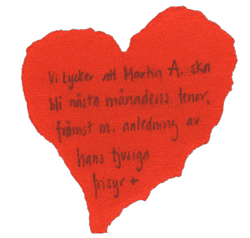 Vi tycker att Martin A. ska
bli nästa månadens tenor,
främst m. anledning av
hans tjusiga
frisyr +